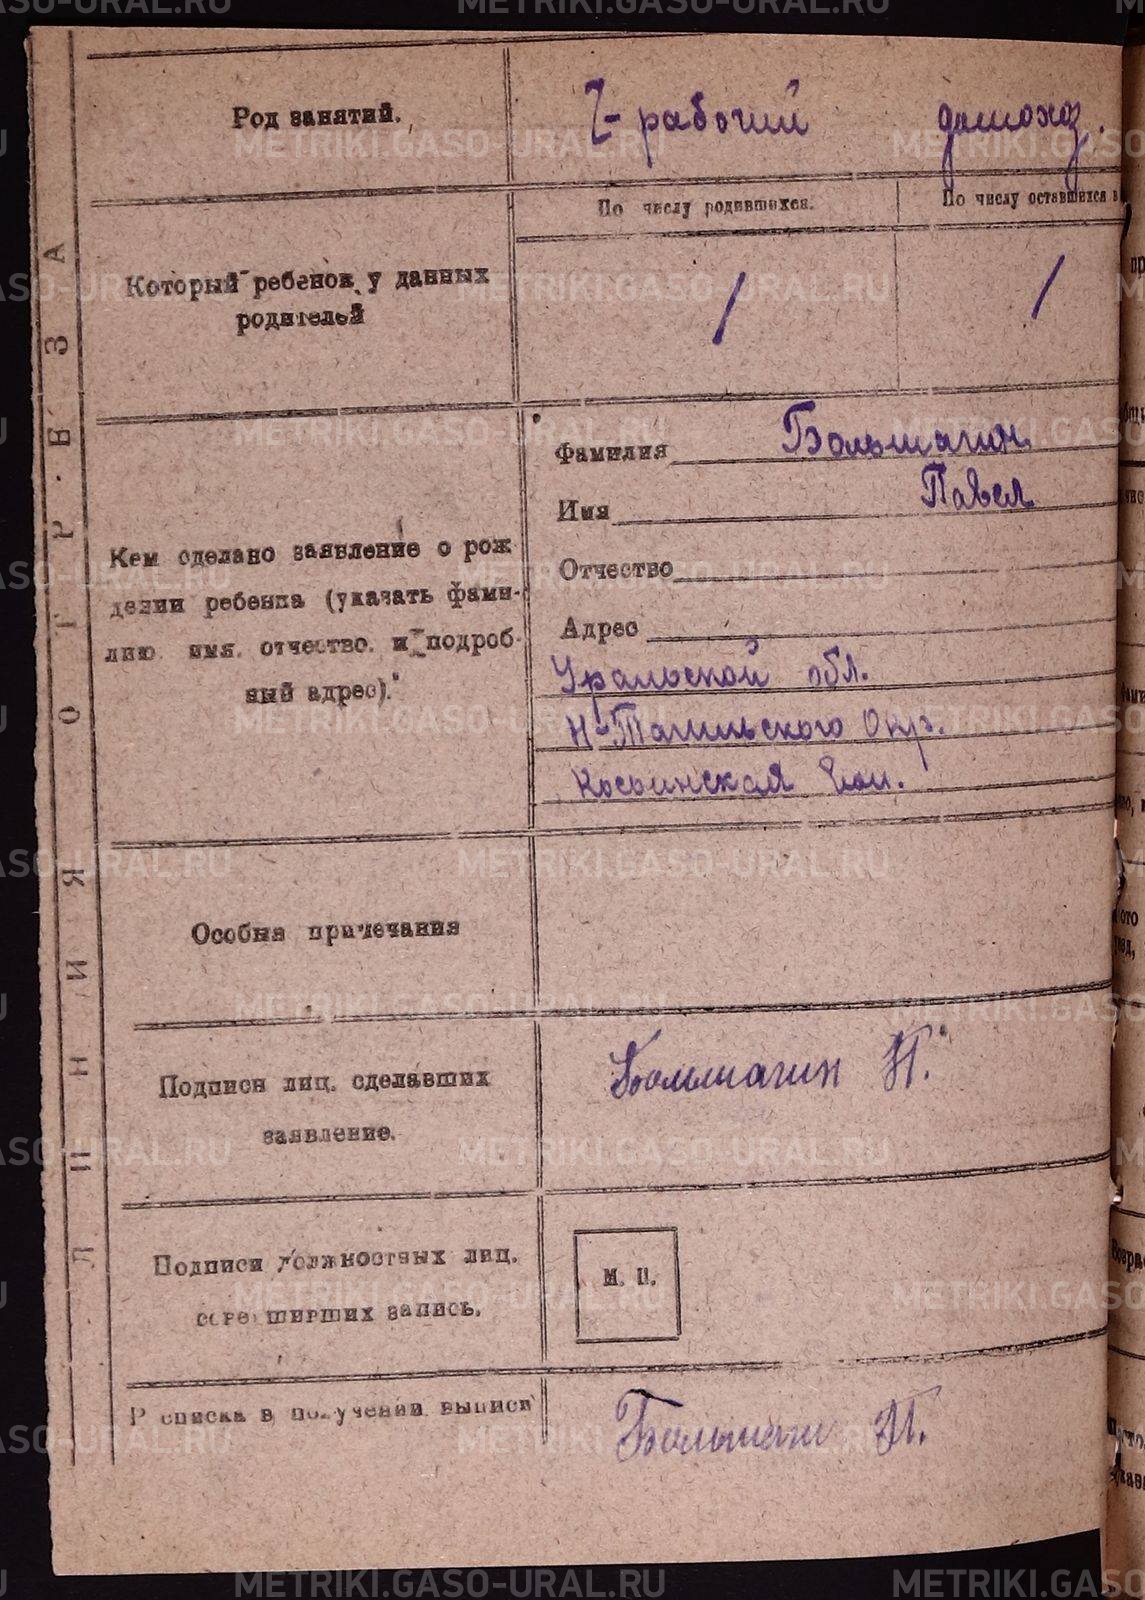 ЛИНИЯ ОТРЕЗА
Род занятий. Ч-рабочий домохоз.
По числу родившихся. По числу оставшихся в
Который ребенок у данных
родителей
1 1
Фамилия Большагин
Имя Павел
Кем сделано заявление о рож
дении ребенка (указать фами-
лию имя, отчество. и подроб-
ный адрес).
Отчество
Адрес
Уральской обл.
Н-Тагильского Окр.
Особыя примечания
Подписи лиц. сделавших
заявление.
Большагин П.
Подписи должностных лиц.
совершивших запись.
М. П.
Р списка в получении выписи
Большагин П.
METRIKI.GASO-URAL.RU